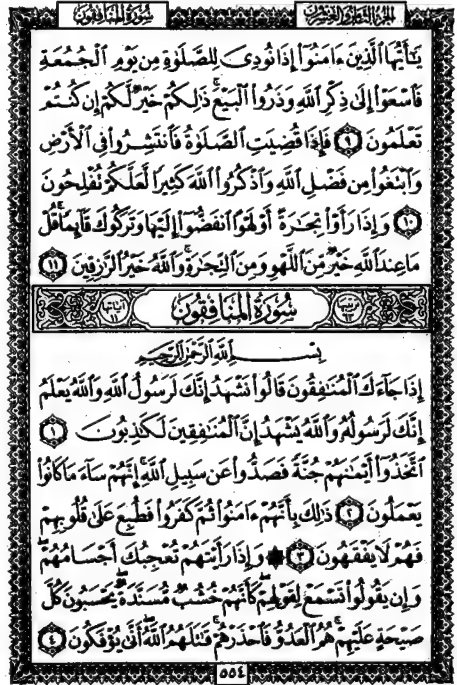 سُورَةُ المُنَافِقُونَ الجُزْءُ الثَّامِنُ وَالعِشْرُونَ
يَٰٓأَيُّهَا ٱلَّذِينَ ءَامَنُوٓا۟ إِذَا نُودِىَ لِلصَّلَوٰةِ مِن يَوْمِ ٱلْجُمُعَةِ
فَٱسْعَوْا۟ إِلَىٰ ذِكْرِ ٱللَّهِ وَذَرُوا۟ ٱلْبَيْعَ ۚ ذَٰلِكُمْ خَيْرٌ لَّكُمْ إِن كُنتُمْ
تَعْلَمُونَ ٩ فَإِذَا قُضِيَتِ ٱلصَّلَوٰةُ فَٱنتَشِرُوا۟ فِى ٱلْأَرْضِ
وَٱبْتَغُوا۟ مِن فَضْلِ ٱللَّهِ وَٱذْكُرُوا۟ ٱللَّهَ كَثِيرًا لَّعَلَّكُمْ تُفْلِحُونَ
١٠ وَإِذَا رَأَوْا۟ تِجَٰرَةً أَوْ لَهْوًا ٱنفَضُّوٓا۟ إِلَيْهَا وَتَرَكُوكَ قَآئِمًا ۚ قُلْ
مَا عِندَ ٱللَّهِ خَيْرٌ مِّنَ ٱللَّهْوِ وَمِنَ ٱلتِّجَٰرَةِ ۚ وَٱللَّهُ خَيْرُ ٱلرَّٰزِقِينَ ١١
ترتيبها ٦٣ سُورَةُ المُنَافِقُونَ آياتها ١١
بِسْمِ ٱللَّهِ ٱلرَّحْمَٰنِ ٱلرَّحِيمِ
إِذَا جَآءَكَ ٱلْمُنَٰفِقُونَ قَالُوا۟ نَشْهَدُ إِنَّكَ لَرَسُولُ ٱللَّهِ وَٱللَّهُ يَعْلَمُ
إِنَّكَ لَرَسُولُهُۥ وَٱللَّهُ يَشْهَدُ إِنَّ ٱلْمُنَٰفِقِينَ لَكَٰذِبُونَ ١
ٱتَّخَذُوٓا۟ أَيْمَٰنَهُمْ جُنَّةً فَصَدُّوا۟ عَن سَبِيلِ ٱللَّهِ ۚ إِنَّهُمْ سَآءَ مَا كَانُوا۟
يَعْمَلُونَ ٢ ذَٰلِكَ بِأَنَّهُمْ ءَامَنُوا۟ ثُمَّ كَفَرُوا۟ فَطُبِعَ عَلَىٰ قُلُوبِهِمْ
فَهُمْ لَا يَفْقَهُونَ ٣ ۞ وَإِذَا رَأَيْتَهُمْ تُعْجِبُكَ أَجْسَامُهُمْ ۖ
وَإِن يَقُولُوا۟ تَسْمَعْ لِقَوْلِهِمْ ۖ كَأَنَّهُمْ خُشُبٌ مُّسَنَّدَةٌ ۖ يَحْسَبُونَ كُلَّ
صَيْحَةٍ عَلَيْهِمْ ۚ هُمُ ٱلْعَدُوُّ فَٱحْذَرْهُمْ ۚ قَٰتَلَهُمُ ٱللَّهُ ۖ أَنَّىٰ يُؤْفَكُونَ ٤
٥٥٤